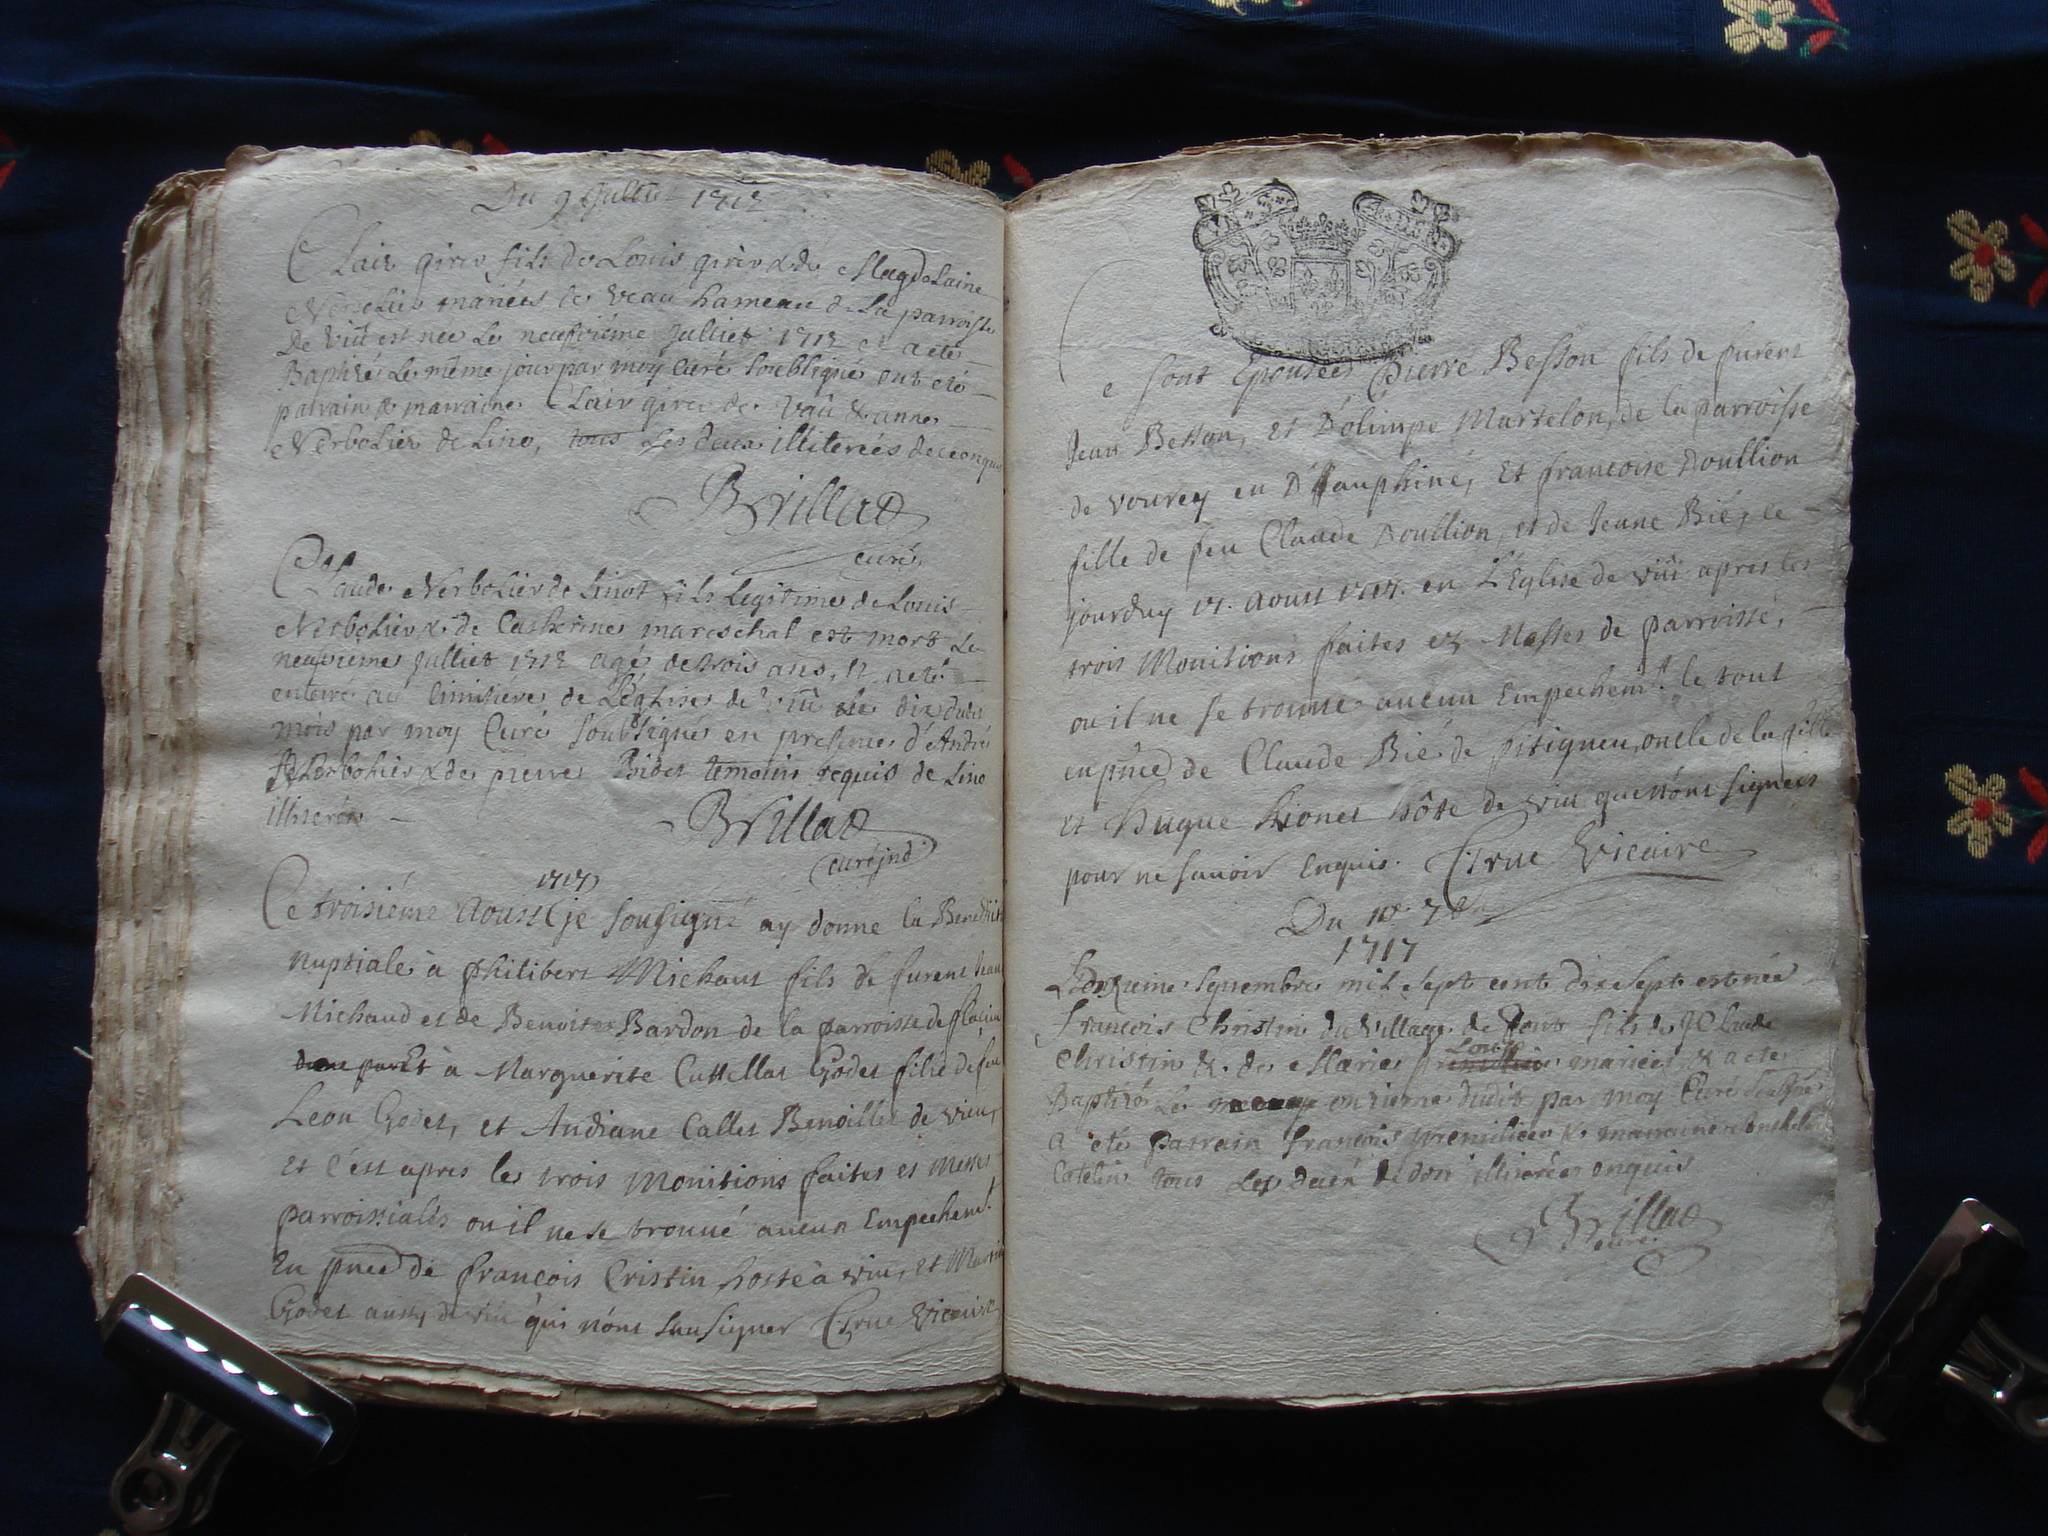 Du 9 Julliet 1717
Clair girer fils de Louis girer & de Magdelaine
Nerbolier mariées de veau hameau de La parroisse
De viû est nee Le neufvième Julliet 1717 et a eté
Baptizé Le même jour par moy Curé soubsigné ont eté
parrain & marraine Clair girer de vaû & anne
Nerbolier de Lino, tous Les deux illiterées de ce enquis
Brillat
curé
Claude Nerbolier de Linot fils Legitime de Louis
Nerbolier & de Catherine mareschal est mort Le
neufvieme Julliet 1717 agé de trois ans, et a eté
enterré au Cimitiere de L'Eglise de viû le dix dudit
mois par moy Curé soubsigné en presence d'André
Nerbolier & de pierre Bidet temoins requis de Lino
illiterées
Brillat
curé
1717
Ce troisiéme Aoust je sousigné ay donne la Benedict
nuptiale à Philibert Michaut fils de furent Jean
Michaud et de Benoite Bardon de la parroisse de
et à Marguerite Cattellat Godet fille de feu
Leon Godet, et Andiane Callet Benoillet de vieu,
et c'est apres les trois Monitions faites es Messes
parroissiales ou il ne se trouvé aucun Empechemt
En pnce de François Cristin hoste à viu, et
Godet aussy de viu qui nont sçu signer Vicaire
Ce sont Epousées Pierre Besson fils de furent
Jean Besson, et D'olimpe Martelon, de la parroisse
de vourey en Dauphiné, Et francoise Doullion
fille de feu Claude Doullion, et de Jeane Bié, ce
jourduy 17. Aoust 1717. en L'Eglise de viû apres les
trois Monitions faites es Messes de parroisse,
ou il ne se trouvé aucun Empechemt. le tout
en pnce de Claude Bié de pitigneu, oncle de la fille
et Hugue Lionet hôte de viu que nont signées
pour ne savoir Enquis. Vicaire
Du 7bre
1717
L'onzieme Septembre mil sept cent dix sept est née
François Christin du village de Dont fils de Claude
Louise
Christin & de Marie mariées & a eté
Baptizé Le onzieme dudit par moy Curé soubsigné
a eté parrain François premilieu & marraine
Catelin tous Les deux de don illiterées enquis
Brillat
curé